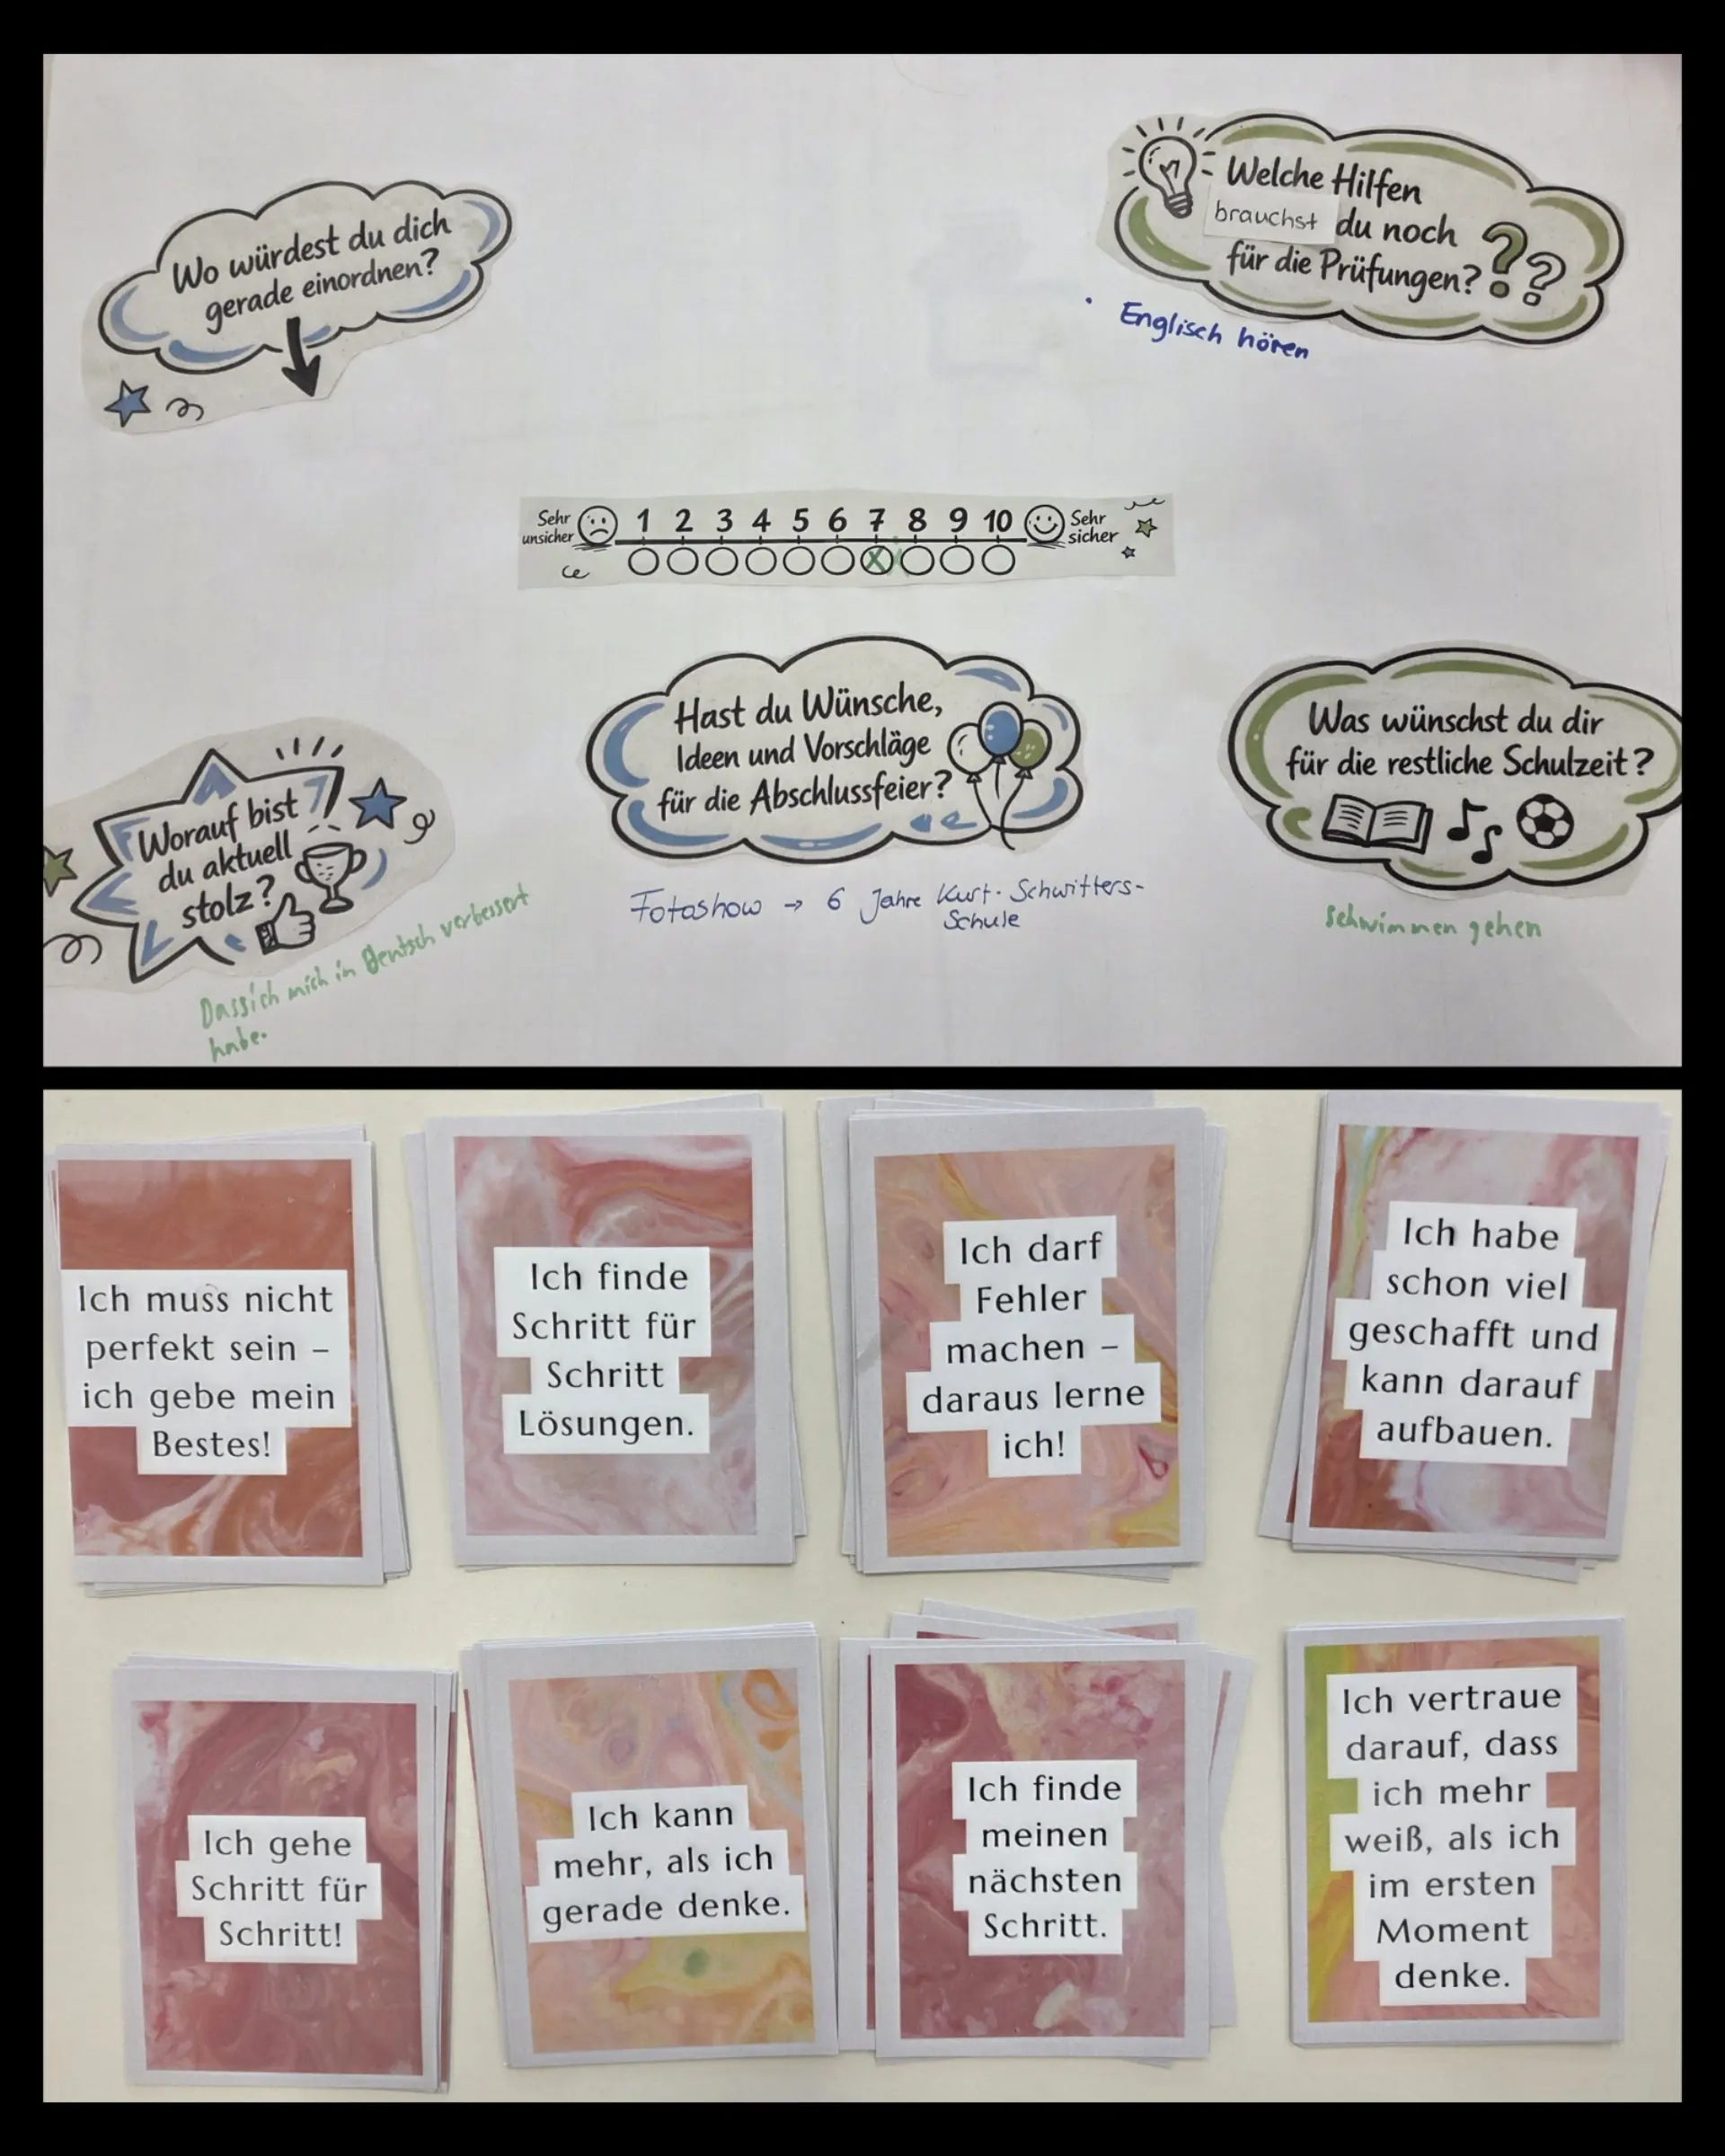 Wo würdest du dich
gerade einordnen?
Welche Hilfen
brauchst du noch
für die Prüfungen?
• Englisch hören
Sehr
unsicher
1 2 3 4 5 6 7 8 9 10
Sehr
sicher
Worauf bist
du aktuell
stolz?
Dass ich mich in Deutsch verbessert
habe.
Hast du Wünsche,
Ideen und Vorschläge
für die Abschlussfeier?
Fotoshow → 6 Jahre Kurt-Schwitters-
Schule
Was wünschst du dir
für die restliche Schulzeit?
schwimmen gehen
Ich muss nicht
perfekt sein –
ich gebe mein
Bestes!
Ich finde
Schritt für
Schritt
Lösungen.
Ich darf
Fehler
machen –
daraus lerne
ich!
Ich habe
schon viel
geschafft und
kann darauf
aufbauen.
Ich gehe
Schritt für
Schritt!
Ich kann
mehr, als ich
gerade denke.
Ich finde
meinen
nächsten
Schritt.
Ich vertraue
darauf, dass
ich mehr
weiß, als ich
im ersten
Moment
denke.